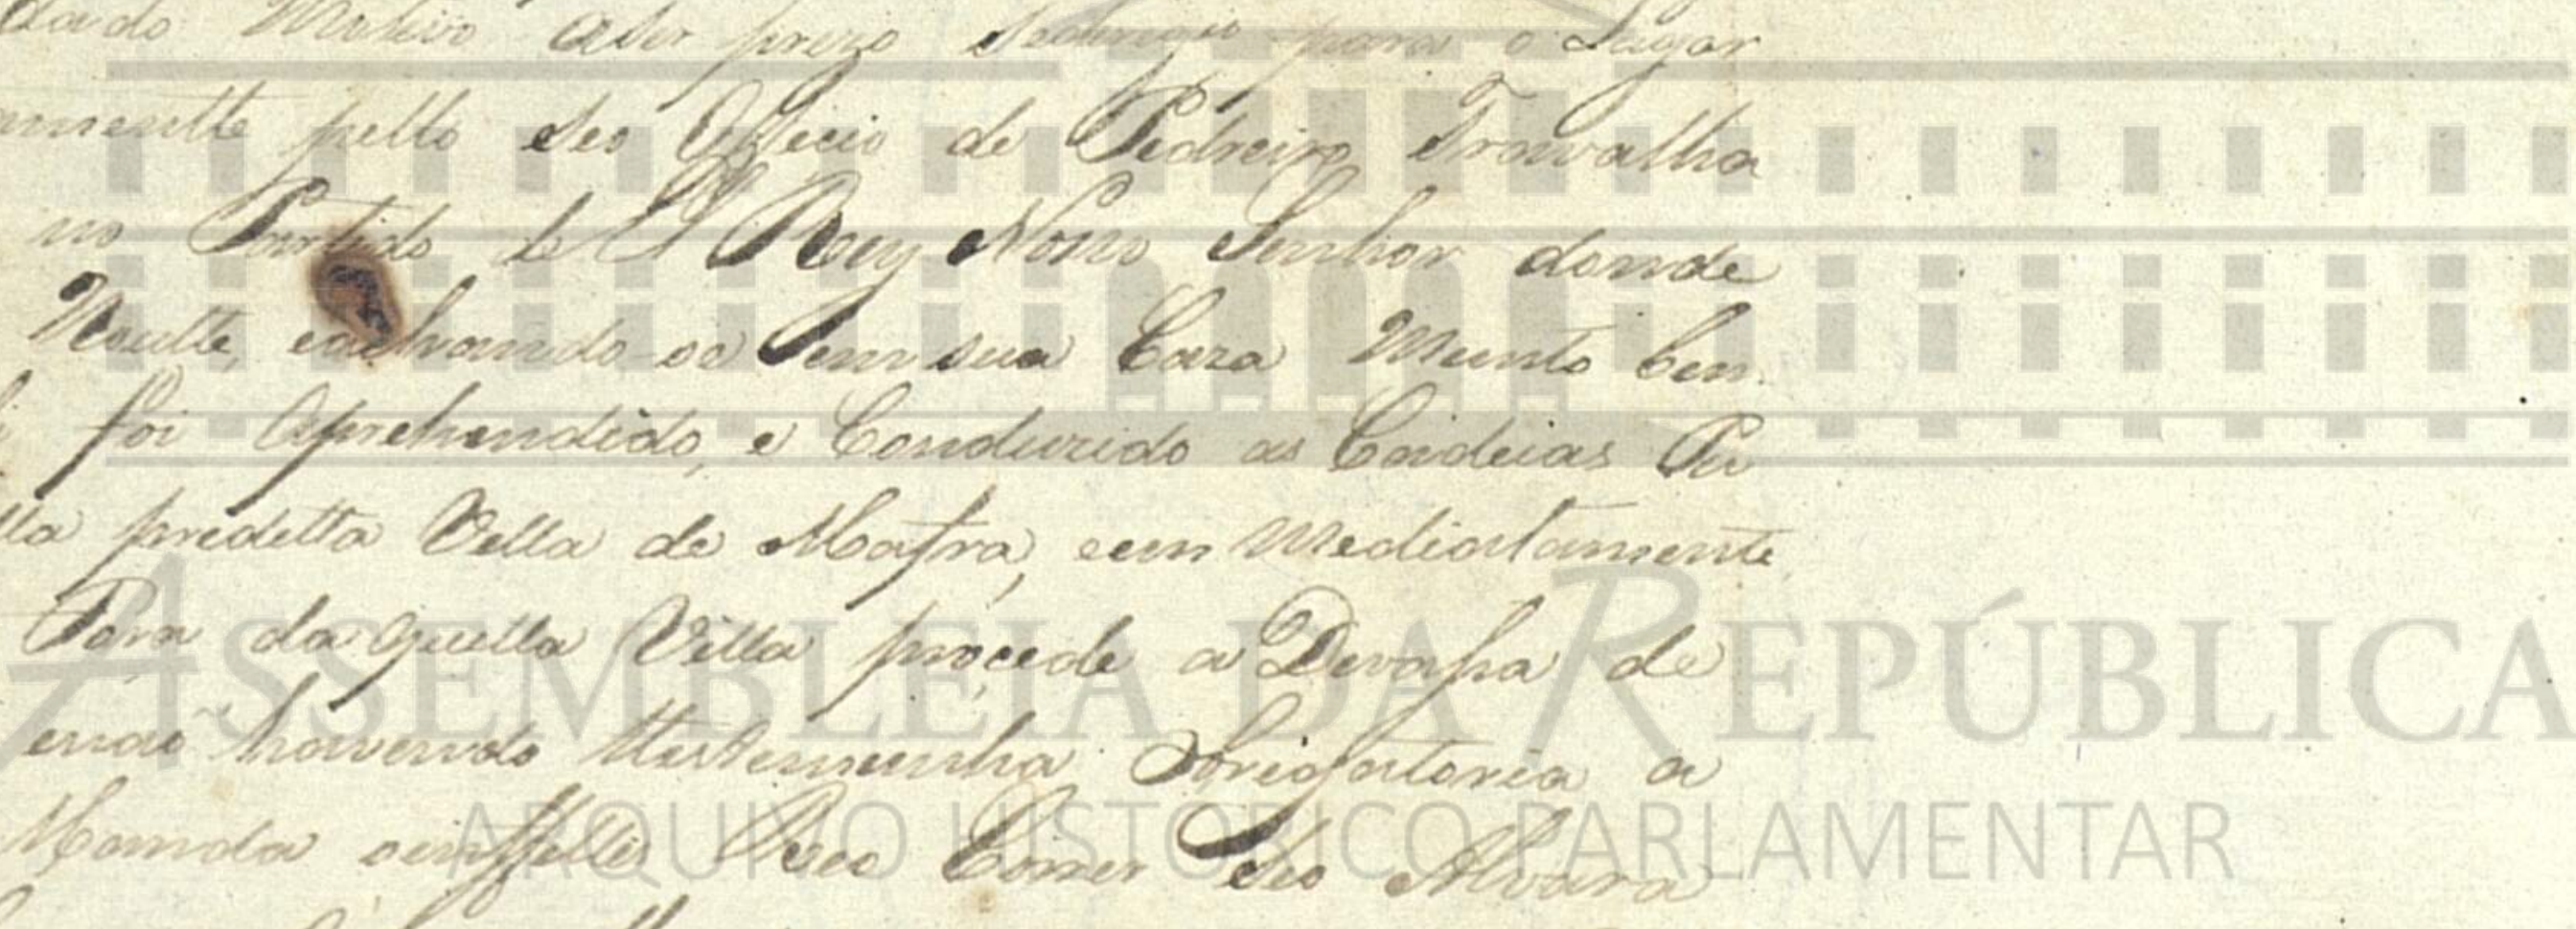 dado Motivo aser prezo para o Lugar
amentte pello seo Officio de Pedreiro Travalha
no Partido de El Rey Nosso Senhor donde
Noutte, eachando se em sua Caza Munto bem
foi Aprehendido, e Conduzido as Caideias Pu
lla predetta Villa de Mafra, eem Mediatamente
da quella Villa procede a Devassa de
enaõ havendo ttestemunha Obrigatoria a
Manda oinffellis Reo Correr seo Alvara
ASSEMBLEIA DA REPÚBLICA
ARQUIVO HISTÓRICO PARLAMENTAR